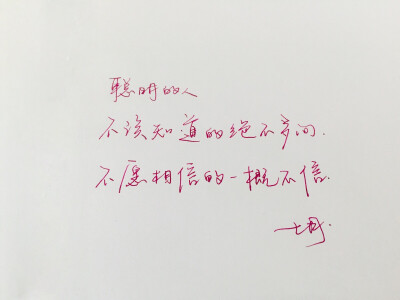 聪明的人
不该知道的绝不多问.
不愿相信的一概不信.